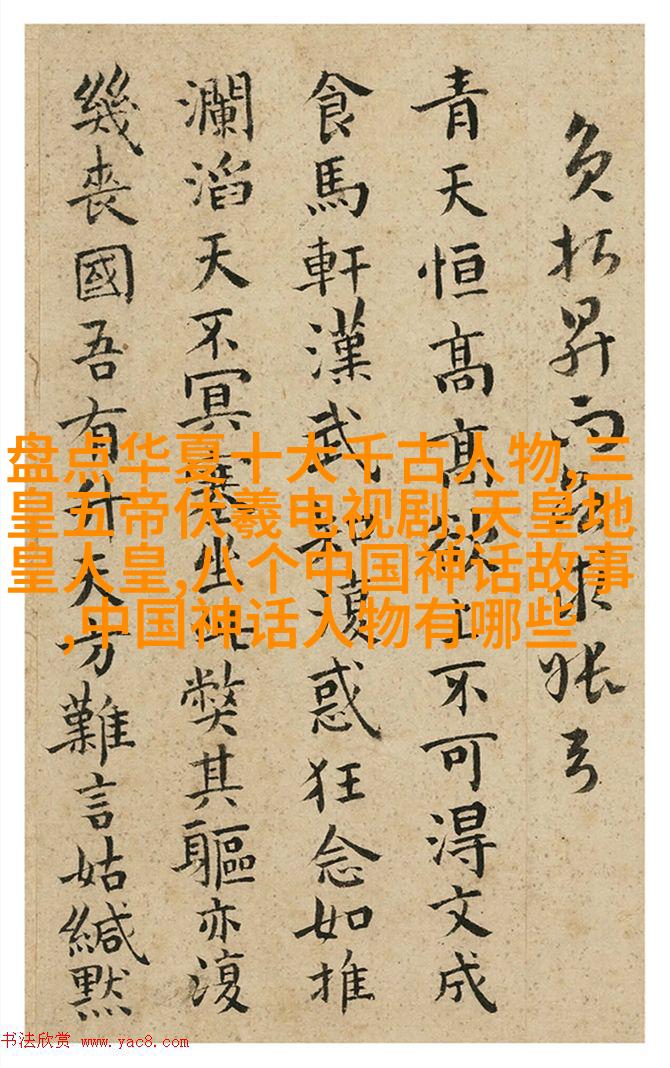 昇而
青天恒高高欲上不可得文成
食馬軒漢武却復惑狂念如推
瀾滔天不冥坐此弊其軀亦復
幾喪國吾有升天方難言姑緘默
盘点华夏十大千古人物,三
皇五帝伏羲电视剧,天皇地
皇人皇,八个中国神话故事
,中国神话人物有哪些
书法欣赏 www.yac8.com